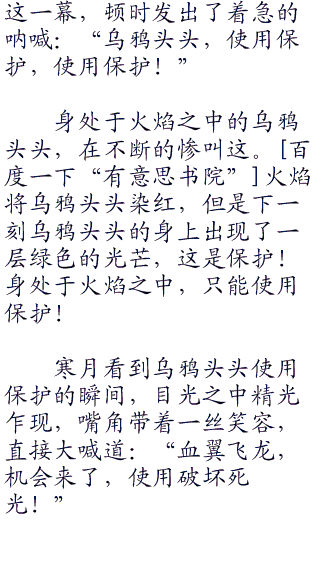 这一幕，顿时发出了着急的
呐喊：“乌鸦头头，使用保
护，使用保护！”
身处于火焰之中的乌鸦
头头，在不断的惨叫这。[百
度一下“有意思书院”]火焰
将乌鸦头头染红，但是下一
刻乌鸦头头的身上出现了一
层绿色的光芒，这是保护！
身处于火焰之中，只能使用
保护！
寒月看到乌鸦头头使用
保护的瞬间，目光之中精光
乍现，嘴角带着一丝笑容，
直接大喊道：“血翼飞龙，
机会来了，使用破坏死
光！”